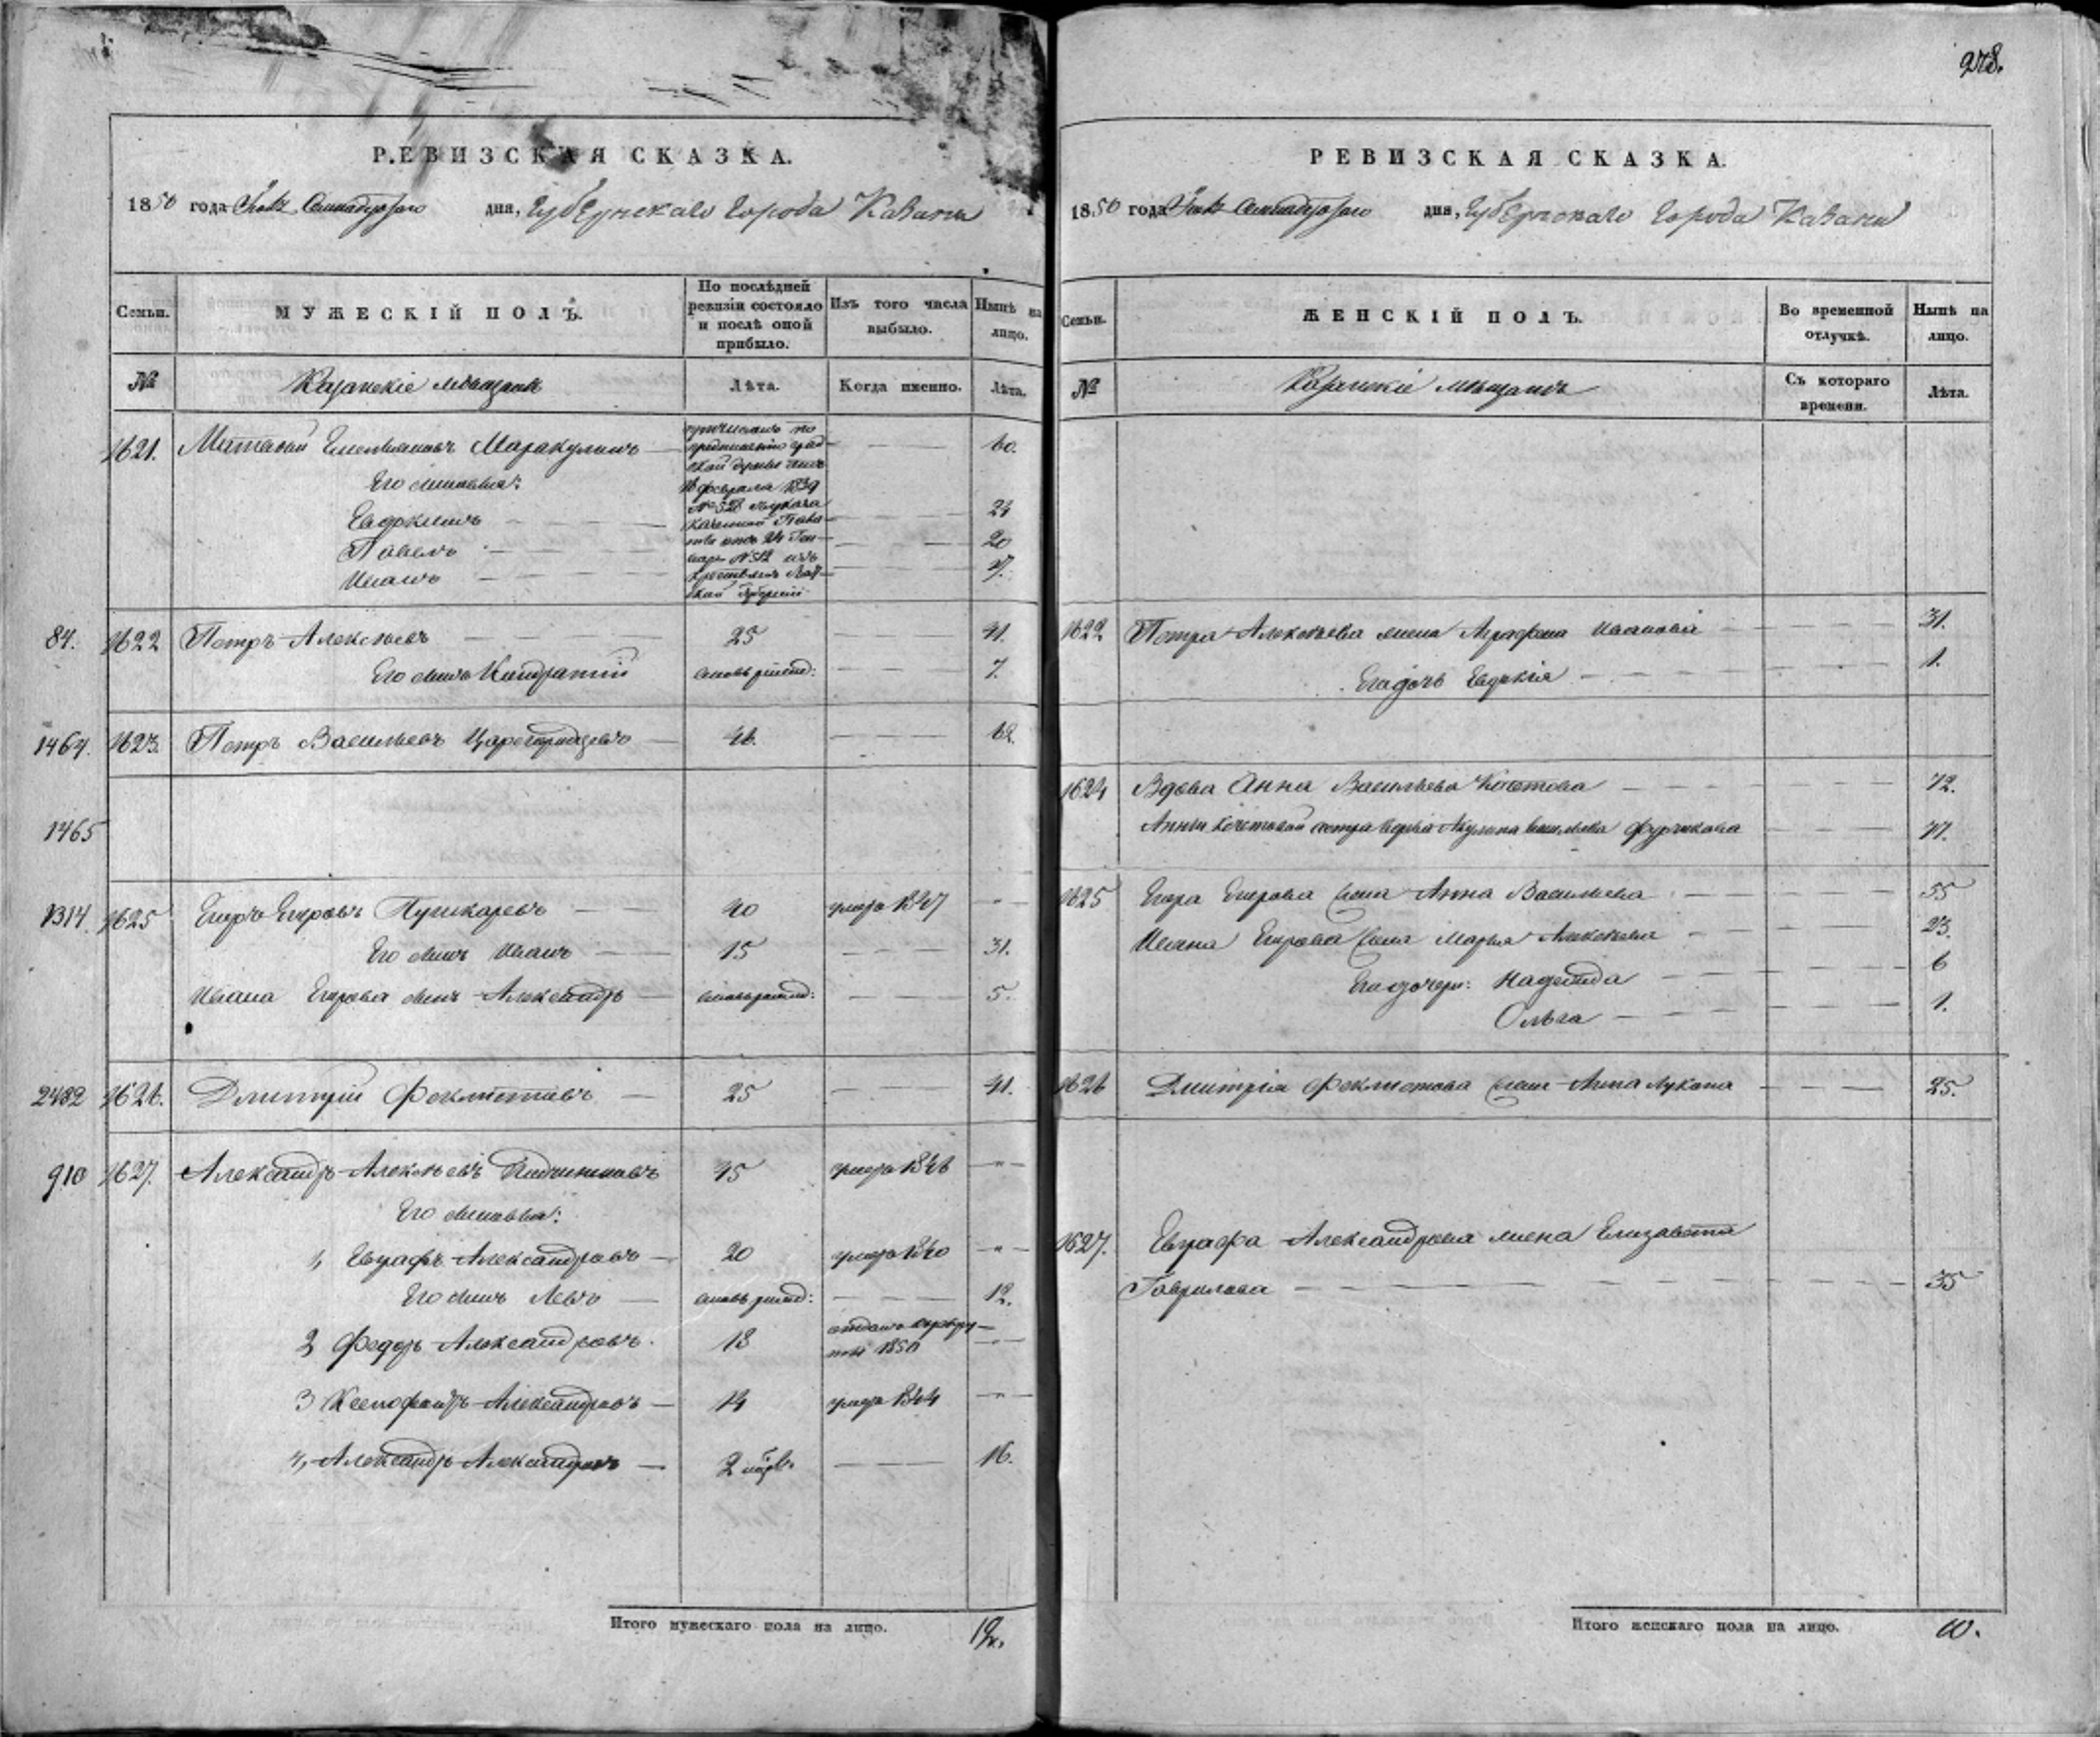 278.
РЕВИЗСКАЯ СКАЗКА.
1850 года дня, Губернскаго Города Казани
Семьи.
МУЖЕСКІЙ ПОЛЪ.
По послѣдней ревизіи состояло и послѣ оной прибыло.
Изъ того числа выбыло.
Нынѣ на лицо.
№
Казанскіе мѣщане
Лѣта.
Когда именно.
Лѣта.
1621. Матвей Емельяновъ Маракулинъ 60.
причисленъ по
предписанію град
ской думы
февраля 1839
№ 328
№ 512 изъ
Его сыновья:
Евдокимъ 24
Павелъ 20
Иванъ 7.
84. 1622 Петръ Алексѣевъ 25 41.
Его сынъ Кондратій вновь рожд: 7.
1464. 1623. Петръ Васильевъ Царегородцевъ 46. 62.
1465
1314. 1625 Егоръ Егоровъ Пушкаревъ 40 умеръ 1847 - " -
Его сынъ Иванъ 15 31.
Ивана Егорова сынъ Александръ вновь рожд: 5.
2482 1626. Дмитрій Феклистовъ 25 41.
910 1627. Александръ Алексѣевъ 45 умеръ 1846 - " -
Его сыновья:
1, Евграфъ Александровъ 20 умеръ 1840 - " -
Его сынъ Левъ вновь рожд: 12.
2 Федоръ Александровъ 18 отданъ въ рекру
ты 1850 - " -
3 Ксенофонтъ Александровъ 14 умеръ 1844 - " -
4, Александръ Александровъ 2 16.
Итого мужескаго пола на лицо.
РЕВИЗСКАЯ СКАЗКА.
1850 года дня, Губернскаго Города Казани
Семьи.
ЖЕНСКІЙ ПОЛЪ.
Во временной отлучкѣ.
Нынѣ на лицо.
№
Казанскіе мѣщане
Съ котораго времени.
Лѣта.
1622 Петра Алексѣева жена Аграфена Иванова 31.
Его дочь Евдокія 1.
1624 Вдова Анна Васильева Кочетова 72.
Анны Кочетовой сестра Акулина Васильева 77.
1625 Егора Егорова жена Анна Васильева 55
Ивана Егорова жена Марья Алексѣева 23.
Его дочери: Надежда 6
Ольга 1.
1626 Дмитрія Феклистова жена Анна Лукина 25.
1627. Евграфа Александрова жена Елизавета
Гаврилова 35
Итого женскаго пола на лицо. 10.